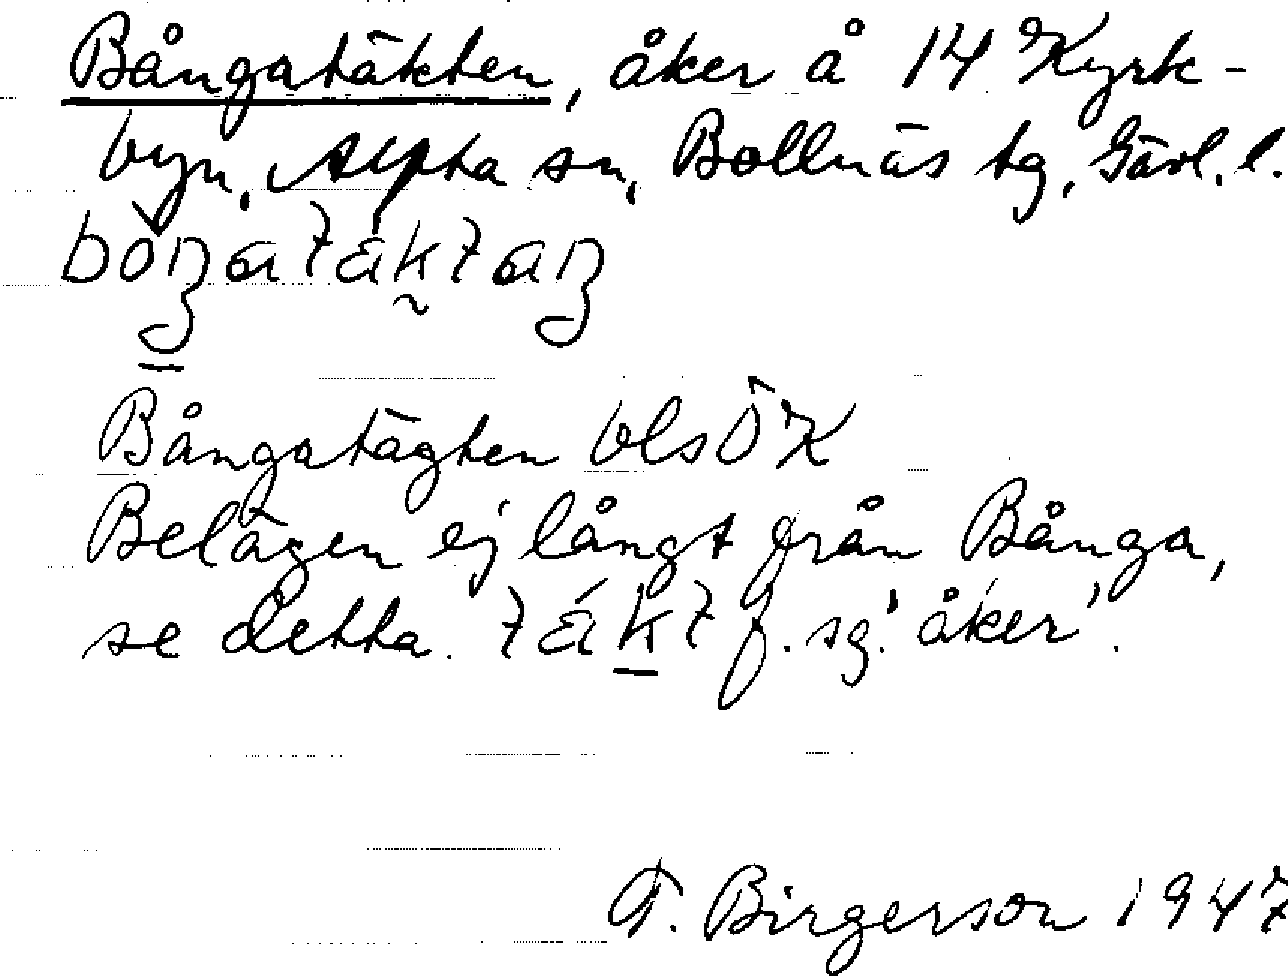 Bångatäkten, åker å 14 Kyrk-
byn, Alfta sn, Bollnäs tg, Gävl. l.
Bångatägten blsÖK
Belägen ej långt från Bånga,
se detta. f. sg. 'åker'.
F. Birgerson 1947